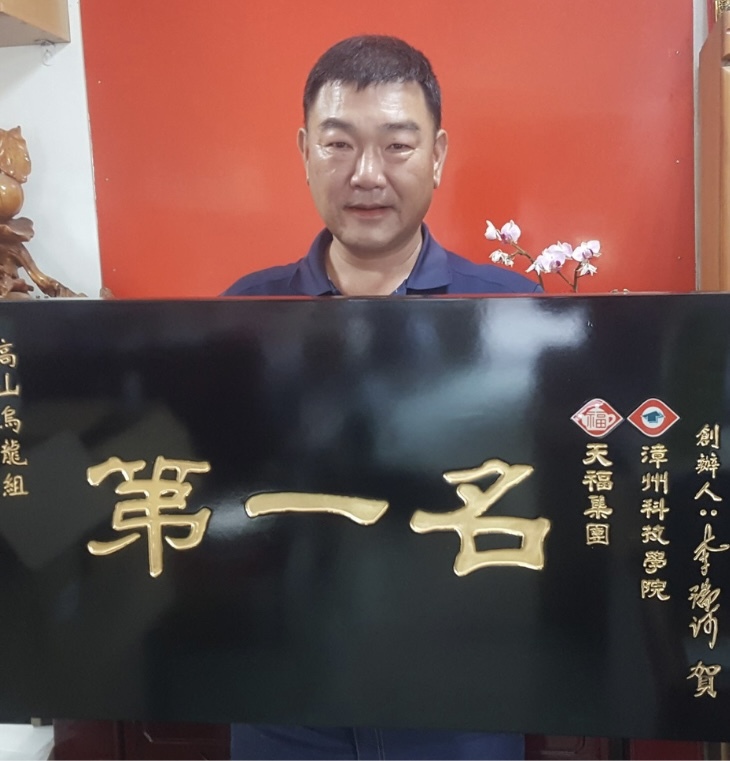 創辦人：李瑞河 賀
漳州科技學院
福
天福集團
第一名
高山烏龍組